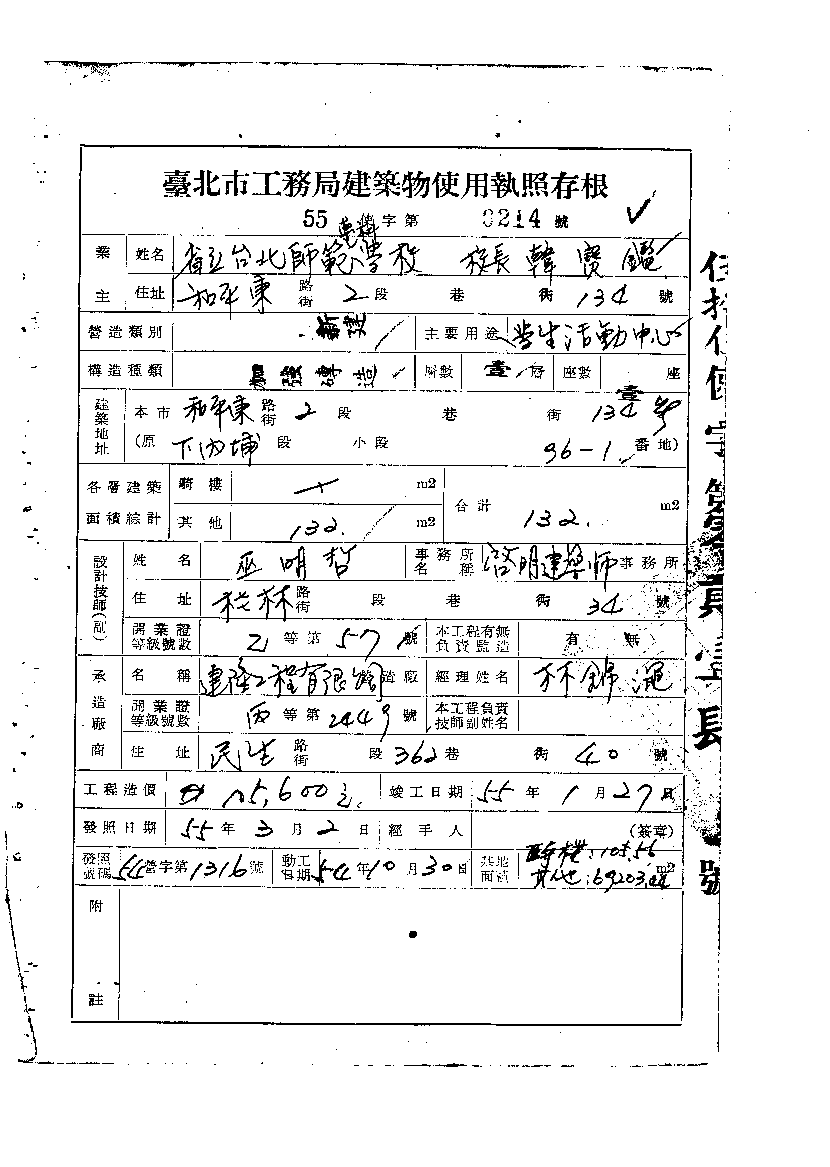 臺北市工務局建築物使用執照存根
55 專科 字第 0214 號
業主 姓名 省立台北師範專學校 校長 韓寶鑑
住址 和平東 路街 2 段 巷 街 134 號
營造類別 新建 主要用途 學生活動中心
構造種類 加強磚造 層數 壹 層 座數 壹 座
建築地址 本市 和平東 路街 2 段 巷 街 134 號
(原 下內埔 段 小段 96-1 番地)
各層建築面積綜計 騎樓 m2 合計 132. m2
其他 132. m2
設計技師(副) 姓名 巫明哲 事務所名稱 啓明建築師 事務所
住址 松林 路街 段 巷 街 34 號
開業證等級號數 乙 等第 57 號 本工程有無負責監造 有 無
承造廠商 名稱 建隆工程有限公司 造廠 經理姓名 林錦
開業證等級號數 丙 等第 2449 號 本工程負責技師副姓名
住址 民生 路街 段 362 巷 街 40 號
工程造價 105,600元 竣工日期 55 年 1 月 27 日
發照日期 55 年 3 月 2 日 經手人 (簽章)
發照號碼 54 營字第 1316 號 動工日期 54 年 10 月 30 日 基地面積 騎樓:105.56 其他:69203.44 m2
附註
使字第 貳壹 號